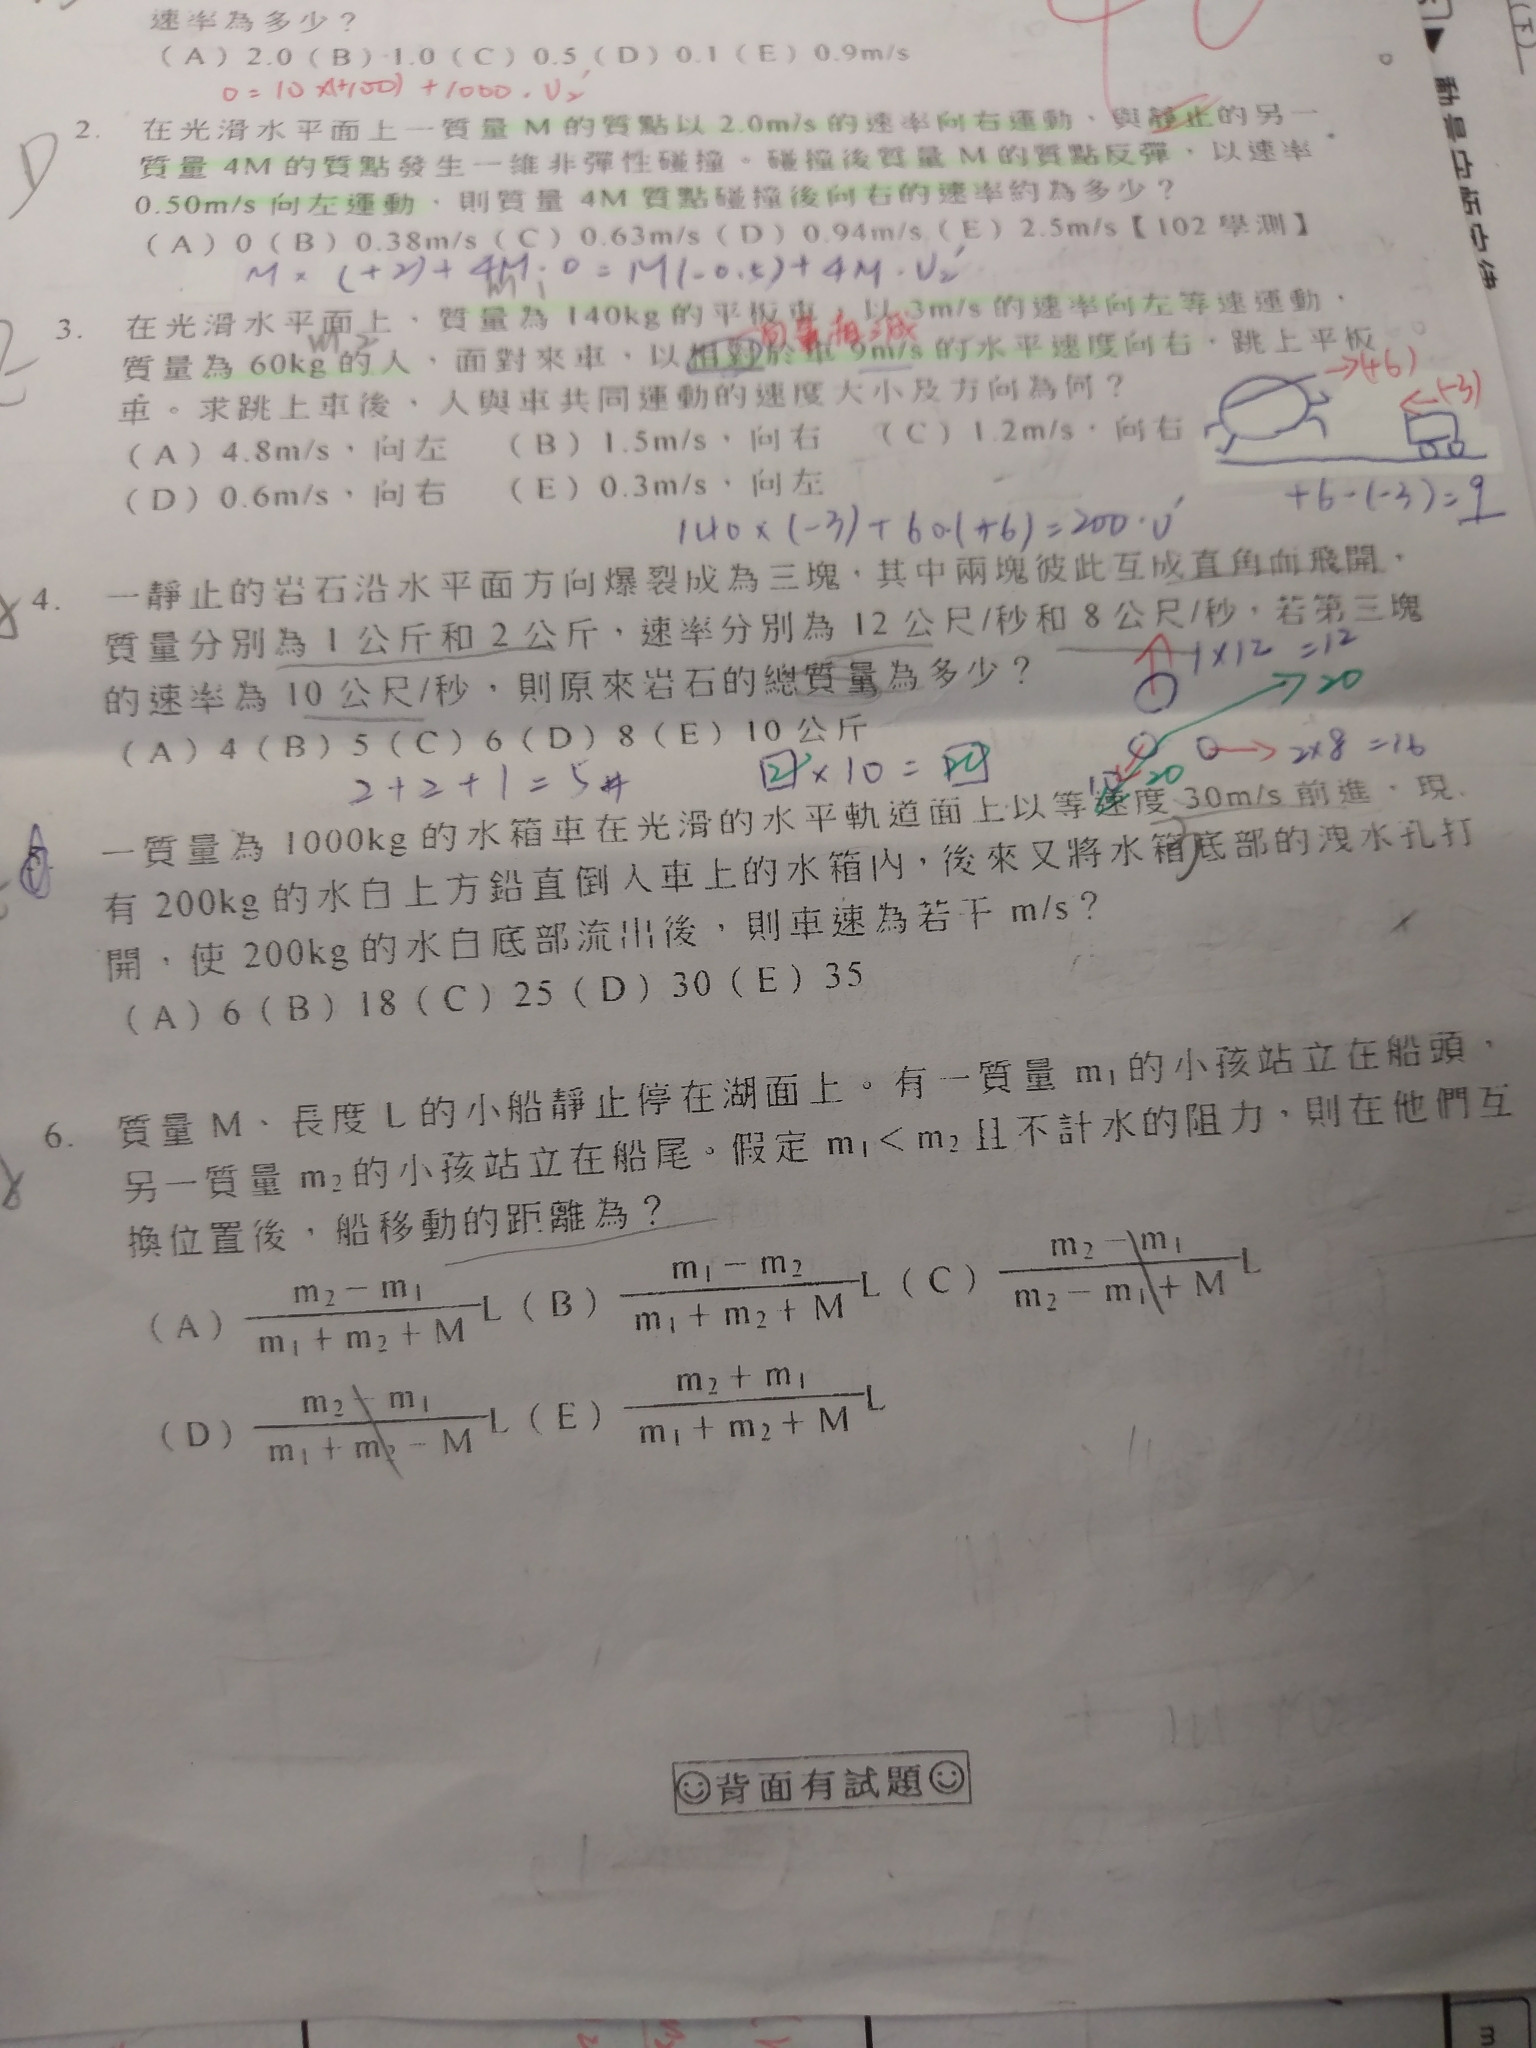 速率為多少？
（A）2.0（B）1.0（C）0.5（D）0.1（E）0.9m/s
2. 在光滑水平面上一質量 M 的質點以 2.0m/s 的速率向右運動，與靜止的另一
質量 4M 的質點發生一維非彈性碰撞。碰撞後質量 M 的質點反彈，以速率
0.50m/s 向左運動，則質量 4M 質點碰撞後向右的速率約為多少？
（A）0（B）0.38m/s（C）0.63m/s（D）0.94m/s（E）2.5m/s【102 學測】
M × (+2) + 4M · 0 = M(-0.5) + 4M · U₂'
3. 在光滑水平面上，質量為 140kg 的平板車，以 3m/s 的速率向左等速運動，
質量為 60kg 的人，面對來車，以相對於車 9m/s 的水平速度向右，跳上平板
車。求跳上車後，人與車共同運動的速度大小及方向為何？
→(+6)
←(-3)
（A）4.8m/s，向左 （B）1.5m/s，向右 （C）1.2m/s，向右
（D）0.6m/s，向右 （E）0.3m/s，向左
+6-(-3)=9
140×(-3)+60(+6)=200·U'
4. 一靜止的岩石沿水平面方向爆裂成為三塊，其中兩塊彼此互成直角而飛開，
質量分別為 1 公斤和 2 公斤，速率分別為 12 公尺/秒和 8 公尺/秒，若第三塊
的速率為 10 公尺/秒，則原來岩石的總質量為多少？
1×12 =12
20
（A）4（B）5（C）6（D）8（E）10 公斤
2×8 =16
2+2+1=5#
2×10=20
20
5. 一質量為 1000kg 的水箱車在光滑的水平軌道面上以等速度 30m/s 前進，現
有 200kg 的水自上方鉛直倒入車上的水箱內，後來又將水箱底部的洩水孔打
開，使 200kg 的水自底部流出後，則車速為若干 m/s？
（A）6（B）18（C）25（D）30（E）35
6. 質量 M、長度 L 的小船靜止停在湖面上。有一質量 m₁ 的小孩站立在船頭，
另一質量 m₂ 的小孩站立在船尾。假定 m₁＜m₂ 且不計水的阻力，則在他們互
換位置後，船移動的距離為？
（A）(m₂－m₁)/(m₁＋m₂＋M) L（B）(m₁－m₂)/(m₁＋m₂＋M) L（C）(m₂－m₁)/(m₂－m₁＋M) L
（D）(m₂＋m₁)/(m₁＋m₂－M) L（E）(m₂＋m₁)/(m₁＋m₂＋M) L
☺背面有試題☺